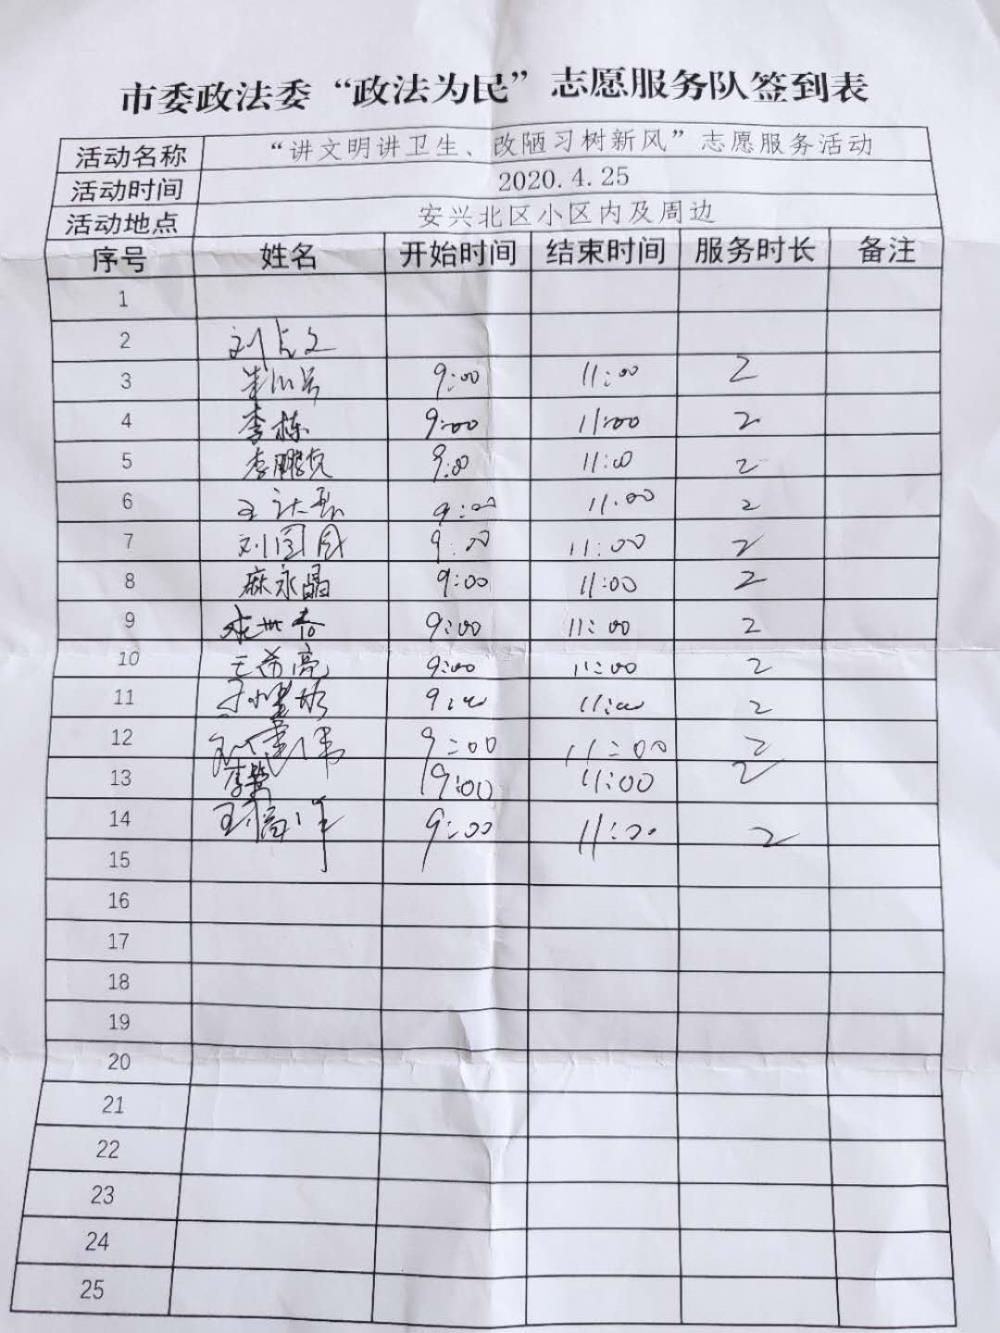 市委政法委“政法为民”志愿服务队签到表
活动名称 “讲文明讲卫生、改陋习树新风”志愿服务活动
活动时间 2020.4.25
活动地点 安兴北区小区内及周边
序号 姓名 开始时间 结束时间 服务时长 备注
1
2 刘占文
3 9:00 11:00 2
4 李栋 9:00 11:00 2
5 李鹏 9:00 11:00 2
6 王 9:00 11:00 2
7 刘国成 9:00 11:00 2
8 麻永晶 9:00 11:00 2
9 9:00 11:00 2
10 王希亮 9:00 11:00 2
11 9:00 11:00 2
12 9:00 11:00 2
13 李 9:00 11:00 2
14 王 9:00 11:00 2
15
16
17
18
19
20
21
22
23
24
25